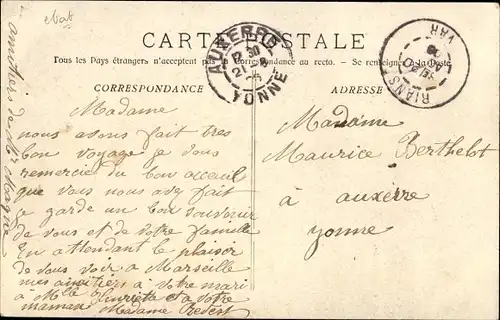 CARTE POSTALE
Tous les Pays étrangers n'acceptent pas la Correspondance au recto. Se renseigner à la Poste.
CORRESPONDANCE
ADRESSE
AUXERRE
YONNE
RIANS
VAR
Madame
nous avons fait tres
bon voyage je vous
remercie du bon acceuil
que vous nous avez fait
je garde un bon souvenir
de vous et de votre famille
En attendant le plaisir
de vous voir à Marseille
mes amitiers à votre mari
à Mlle Henriette et a votre
maman Madame
amitiers de Mr
Madame
Maurice Berthelot
à auxerre
yonne